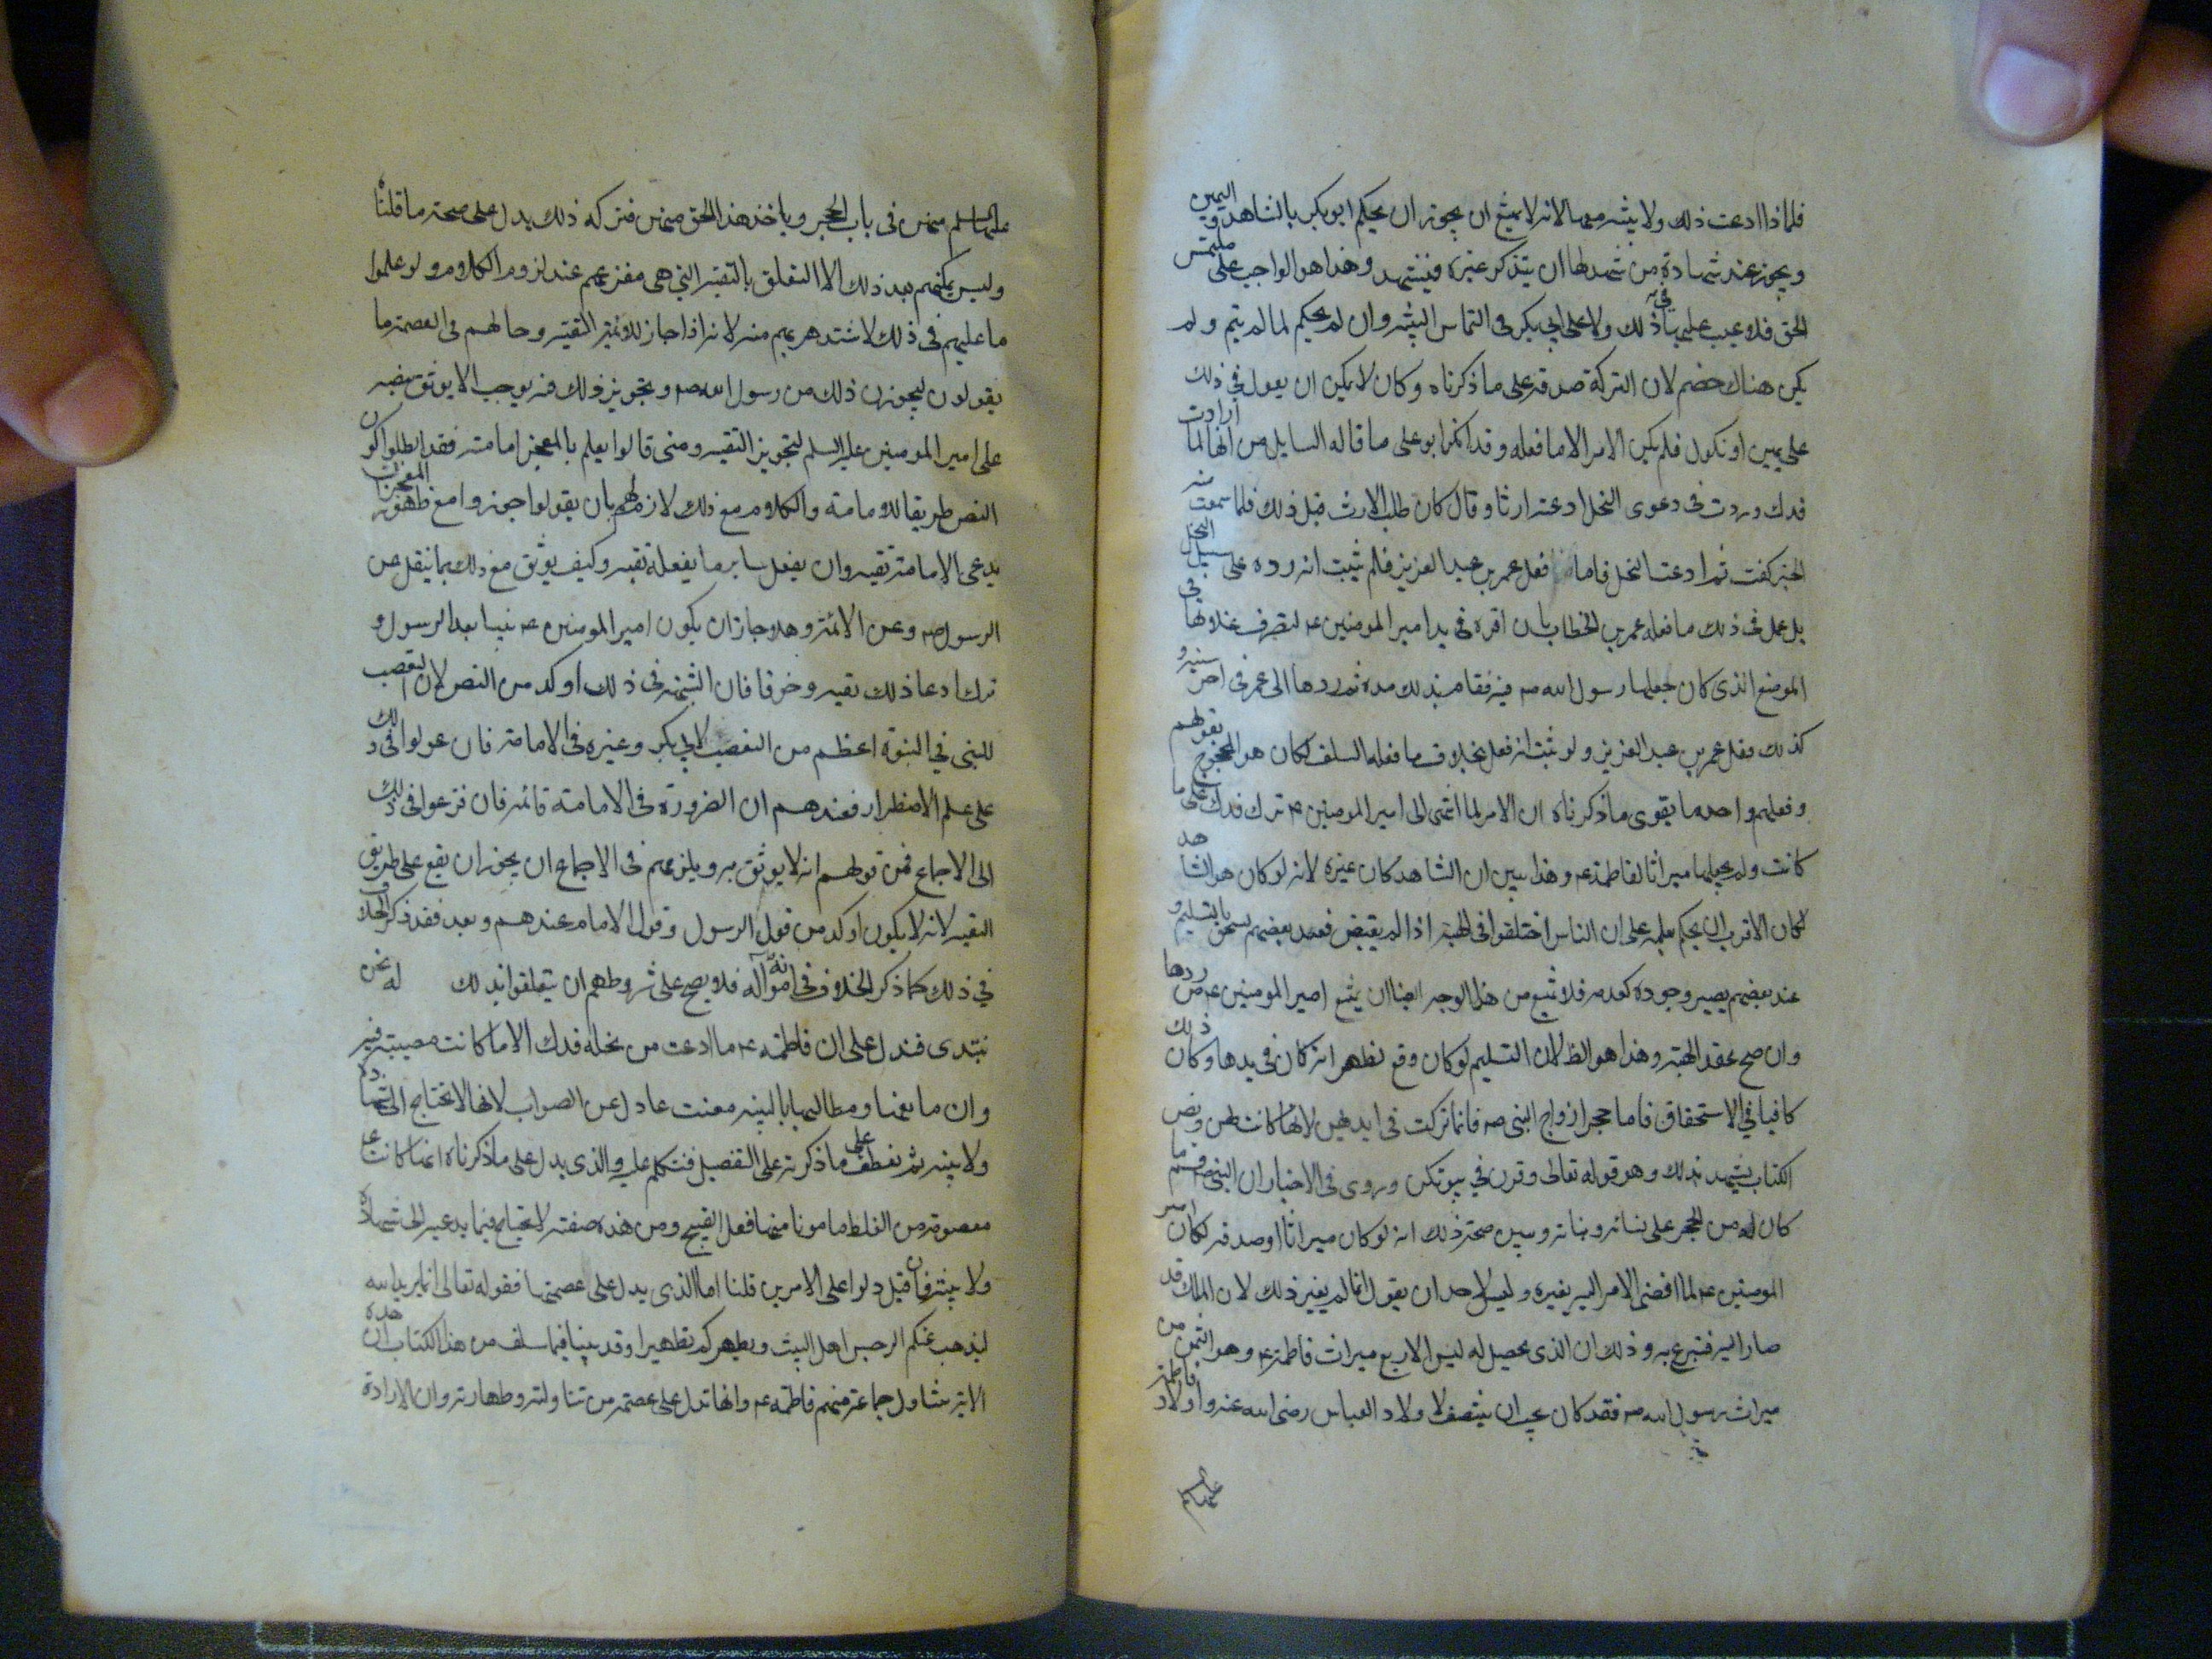 فلماذا ادعت ذلك ولا بينة معها لانه لا يمتنع ان يجوز ان يحكم ابو بكر بالشاهد و اليمين
ويجوز عند شهادة من شهد لها ان يتذكر غيره فيشهد وهذا هو الواجب على ملتمس
الحق فلا عيب عليها في ذلك ولا على ابي بكر في التماس البينة وان لم يحكم لما لم يتم ولم
يكن هناك خصم لان التركة صدقة على ما ذكرناه وكان لا يمكن ان يعول في ذلك
على يمين او نكول فلم يكن الامر الا ما فعله وقد انكر ابو على ما قاله السايل من انها لما ارادت
فدك وردت في دعوى النحل ادعته ارثا وقال كان طلب الارث قبل ذلك فلما سمعت منه
الخبر كفت ثم ادعت النحل فاما فعل عمر بن عبد العزيز فلم يثبت انه رده على سبيل النحل
بل عمل في ذلك ما فعله عمر بن الخطاب بان اقره في يد امير المومنين ع ليصرف غلاتها في
الموضع الذي كان جعلها رسول الله ص فيه فقام بذلك مدة ثم ردها الى عمر في اخر سنيه و
كذلك فعل عمر بن عبد العزيز ولو ثبت انه فعل بخلاف ما فعله السلف لكان هو المحجوج بقولهم
وفعلهم واحد ما يقوي ما ذكرناه ان الامر لما انتهى الى امير المومنين ع ترك فدك على ما
كانت ولم يجعلها ميراثا لفاطمة ع وهذا يبين ان الشاهد كان غيره لانه لو كان هو الشاهد
لكان الاقرب ان يحكم بعلمه على ان الناس اختلفوا في الهبة اذا لم يقبض فعند بعضهم يستحق بالتسليم و
عند بعضهم يصير وجوده كعدمه فلا يمتنع من هذا الوجه ايضا ان يمتنع امير المومنين ع من ردها
وان صح عقد الهبة وهذا هو الظ لان التسليم لو كان وقع لظهر انه كان في يدها وكان ذلك
كافيا في الاستحقاق فاما حجر ازواج النبي ص فانما تركت في ايديهن لانها كانت لهن ونص
الكتاب يشهد بذلك وهو قوله تعالى وقرن في بيوتكن وروي في الاخبار ان النبي ص قسم ما
كان له من الحجر على نسائه وبناته ويبين صحة ذلك انه لو كان ميراثا او صدقه لكان امير
المومنين ع لما افضى الامر اليه يغيره وليس لاحد ان يقول انما لم يغير ذلك لان الملك قد
صار اليه فتبرع به وذلك ان الذي يحصل له ليس الا ربع ميراث فاطمة ع وهو الثمن من
ميراث رسول الله ص فقد كان يجب ان ينتصف لاولاد العباس رضي الله عنه واولاد فاطمة
عليها السلم
عليها السلم منهن في باب الحجر وياخذ هذا الحق منهن فتركه ذلك يدل على صحة ما قلناه
وليس يمكنهم بعد ذلك الا التعلق بالتقية التي هي مفزعهم عند لزوم الكلام ولو علموا
ما عليهم في ذلك لاشتد هربهم منه لانه اذا جاز للائمة التقية وحالهم في العصمة ما
يقولون ليجوزن ذلك من رسول الله ص وتجويز ذلك فيه يوجب الا يوثق بنصه
على امير المومنين عليه السلم لتجويز التقيه ومتى قالوا يعلم بالمعجز امامته فقد ابطلوا كون
النص طريقا للامامة والكلام مع ذلك لازم لهم بان يقولوا جوزوا مع ظهور المعجزات ان
يدعي الامامة تقيه وان يفعل ساير ما يفعله تقيه وكيف يوثق مع ذلك بما ينقل عن
الرسول ص وعن الائمة وهلا جاز ان يكون امير المومنين ع نبيا بعد الرسول و
ترك ادعا ذلك تقيه وخوفا فان الشبهة في ذلك اوكد من النص لان التعصب
للنبي في النبوة اعظم من التعصب لابي بكر وغيره في الامامة فان عولوا في ذلك
على علم الاضطرار فعندهم ان الضرورة في الامامة قائمه فان فزعوا في ذلك
الى الاجماع فمن قولهم انه لا يوثق به ويلزمهم في الاجماع ان يجوز ان يقع على طريق
التقيه لانه لا يكون اوكد من قول الرسول وقول الامام عندهم وبعد فقد ذكر الخلاف
في ذلك كما ذكر الخلاف في انه اله فلا يصح على شروطهم ان يتعلقوا بذلك له نحن
نبتدي فندل على ان فاطمة ع ما ادعت من نحله فدك الا ما كانت مصيبة فيه
وان مانعها ومطالبها بالبينه متعنت عادل عن الصواب لانها لا تحتاج الى شهادة
ولا بينه ثم نعطف على ما ذكرته على التفصيل فنتكلم عليه والذي يدل على ما ذكرناه انها كانت ع
معصومة من الغلط مامونا منها فعل القبيح ومن هذه صفته لا يحتاج فيما يدعيه الى شهادة
ولا بينة فان قيل دلوا على الامرين قلنا اما الذي يدل على عصمتها فقوله تعالى انما يريد الله
ليذهب عنكم الرجس اهل البيت ويطهركم تطهيرا وقد بينا فيما سلف من هذا الكتاب ان هذه
الاية تتناول جماعة منهم فاطمة ع وانها تدل على عصمة من تناولته وطهارته وان الارادة